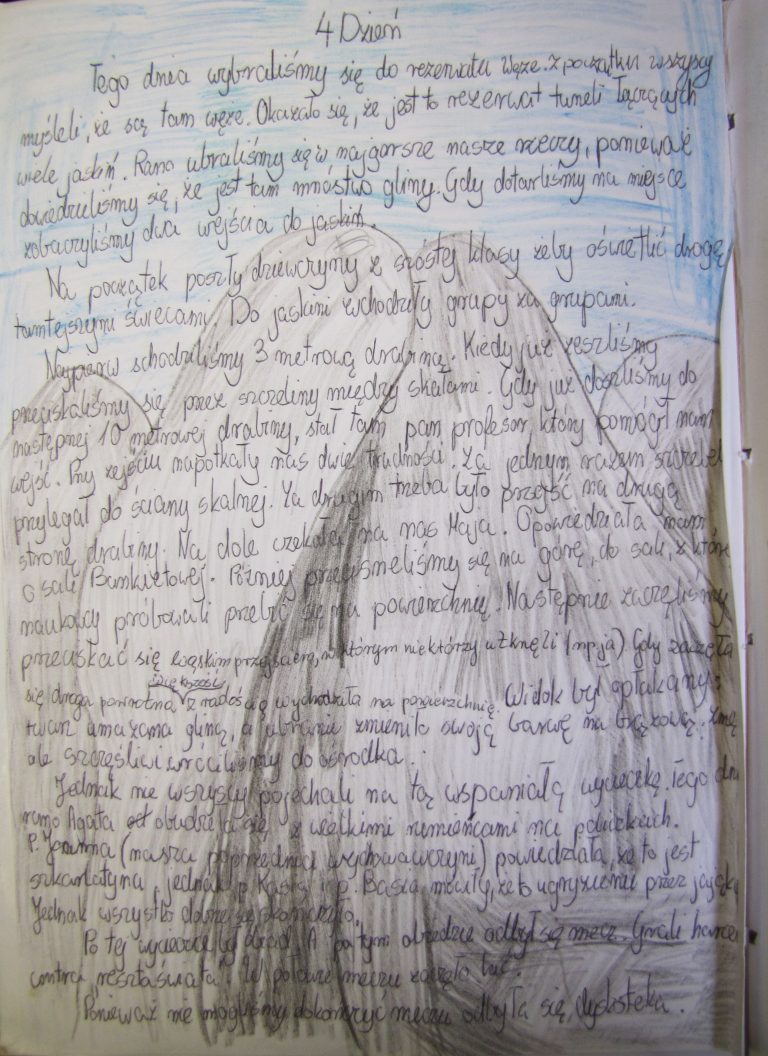 4 Dzień
Tego dnia wybraliśmy się do rezerwatu węże. z początku wszyscy
myśleli, że są tam węże. Okazało się, że jest to rezerwat tuneli łączących
wiele jaskiń. Rano ubraliśmy się w najgorsze nasze rzeczy, ponieważ
dowiedzieliśmy się, że jest tam mnóstwo gliny. Gdy dotarliśmy na miejsce
zobaczyliśmy dwa wejścia do jaskiń.
Na początek poszły dziewczyny z szóstej klasy żeby oświetlić drogę
tamtejszymi świecami. Do jaskini wchodziły grupy za grupami.
Najpierw schodziliśmy 3 metrową drabiną. Kiedy już zeszliśmy
przeciskaliśmy się przez szczeliny między skałami. Gdy już doszliśmy do
następnej 10 metrowej drabiny, stał tam pan profesor który pomógł nam
wejść. Przy zejściu napotkały nas dwie trudności. Za jednym razem szczebel
przylegał do ściany skalnej. Za drugim trzeba było przejść na drugą
stronę drabiny. Na dole czekała na nas Maja. Opowiedziała nam
o sali Bankietowej. Później przecisneliśmy się na górę, do sali, z której
naukowcy próbowali przebić się na powierzchnię. Następnie zaczęliśmy
przeciskać się wąskim przejściem, w którym niektórzy utknęli (np. ja) Gdy zaczęła
się droga powrotna większość z radością wychodziła na powierzchnię. Widok był opłakany:
twarz umazana gliną, a ubranie zmieniło swoją barwę na brązową.
ale szczęśliwi wróciliśmy do ośrodka.
Jednak nie wszyscy pojechali na tą wspaniałą wycieczkę. Tego dnia
rano Agata obudziła się z wielkimi rumieńcami na policzkach.
P. Joanna (nasza poprzednia wychowawczyni) powiedziała, że to jest
szkarlatyna, jednak p. Kasia i p. Basia mówiły, że to ugryzienie przez
Jednak wszystko dobrze się skończyło.
Po tej wycieczce był obiad. A po tym obiedzie odbył się mecz. Grali harcerze
contra "reszta świata". W połowie meczu zaczęło lać.
Ponieważ nie mogliśmy dokończyć meczu odbyła się dyskoteka.